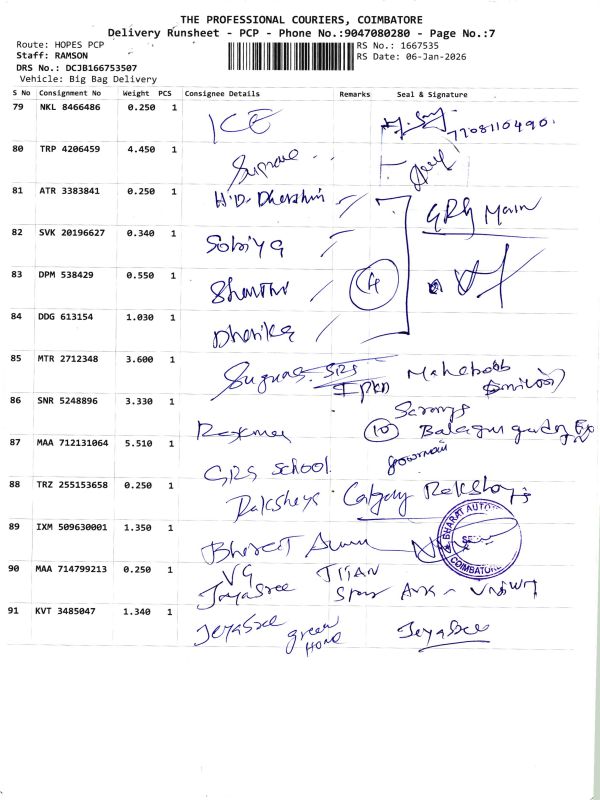 THE PROFESSIONAL COURIERS, COIMBATORE
Delivery Runsheet - PCP - Phone No.:9047080280 - Page No.:7
Route: HOPES PCP
Staff: RAMSON
DRS No.: DCJB166753507
Vehicle: Big Bag Delivery
RS No.: 1667535
RS Date: 06-Jan-2026
S No Consignment No Weight PCS Consignee Details Remarks Seal & Signature
79 NKL 8466486 0.250 1 ICE
7708110490.
80 TRP 4206459 4.450 1
81 ATR 3383841 0.250 1 H.D. Dharshini
GRG Main
82 SVK 20196627 0.340 1 Sobiya
83 DPM 538429 0.550 1 Shanthi 4
84 DDG 613154 1.030 1 Dharika
85 MTR 2712348 3.600 1 Suguna SRS
Maheboob
86 SNR 5248896 3.330 1
10
87 MAA 712131064 5.510 1 GRG School
88 TRZ 255153658 0.250 1 Raksheys Raksheys
89 IXM 509630001 1.350 1 Bharat
BHARAT AUTO
COIMBATORE
90 MAA 714799213 0.250 1 VG TITAN
JayaSree
91 KVT 3485047 1.340 1 JeyaSree green Home JeyaSree